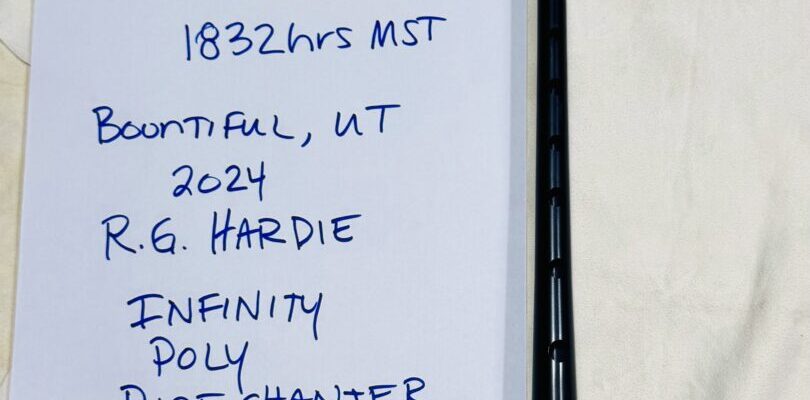 1832hrs MST
BOUNTIFUL, UT
2024
R.G. HARDIE
INFINITY
POLY
PIPE CHANTER